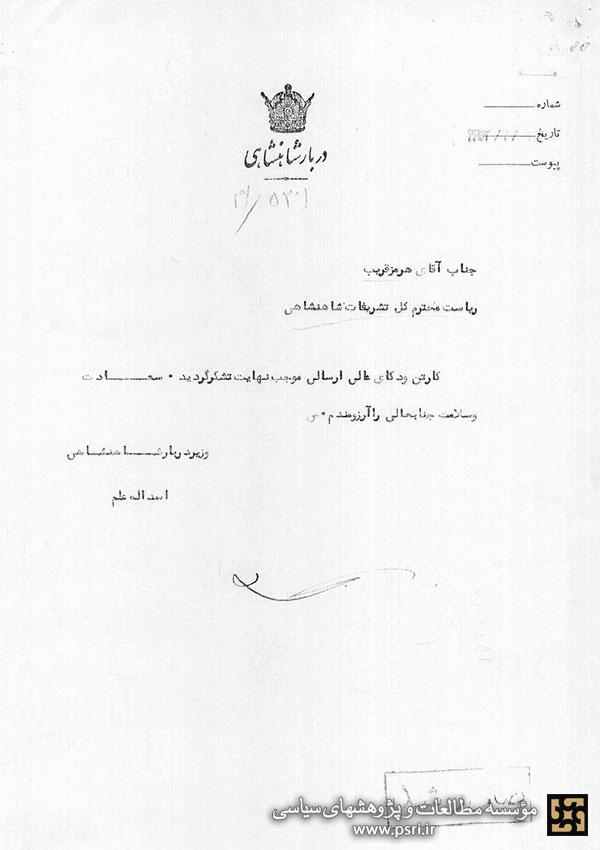 شماره
تاریخ
پیوست
دربار شاهنشاهی
۳/۵۳۰۱
جناب آقای هرمز قریب
ریاست محترم کل تشریفات شاهنشاهی
کارتن ودکای عالی ارسالی موجب نهایت تشکر گردید ۰ سعـــــادت
وسلامت جنابعالی را آرزومندم ۰
وزیر دربار شـــاهنشـاهی
اسداله علم
مؤسسه مطالعات و پژوهشهای سیاسی
www.psri.ir